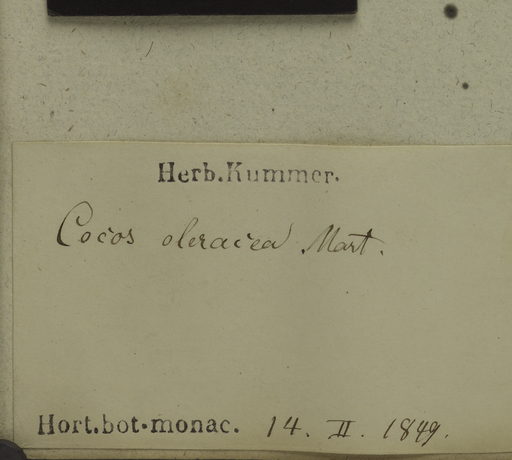 Herb.Kummer.
Cocos oleracea Mart.
Hort.bot-monac. 14. II. 1849.